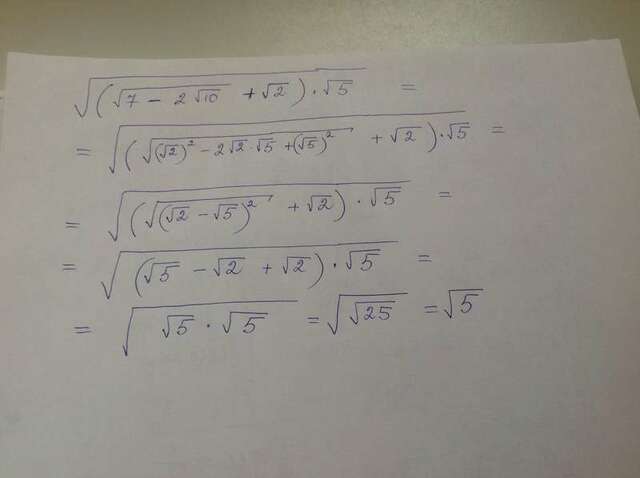 √((√(7 − 2√10) + √2) · √5) =
= √((√((√2)² − 2√2·√5 + (√5)²) + √2) · √5) =
= √((√((√2 − √5)²) + √2) · √5) =
= √((√5 − √2 + √2) · √5) =
= √(√5 · √5) = √(√25) = √5